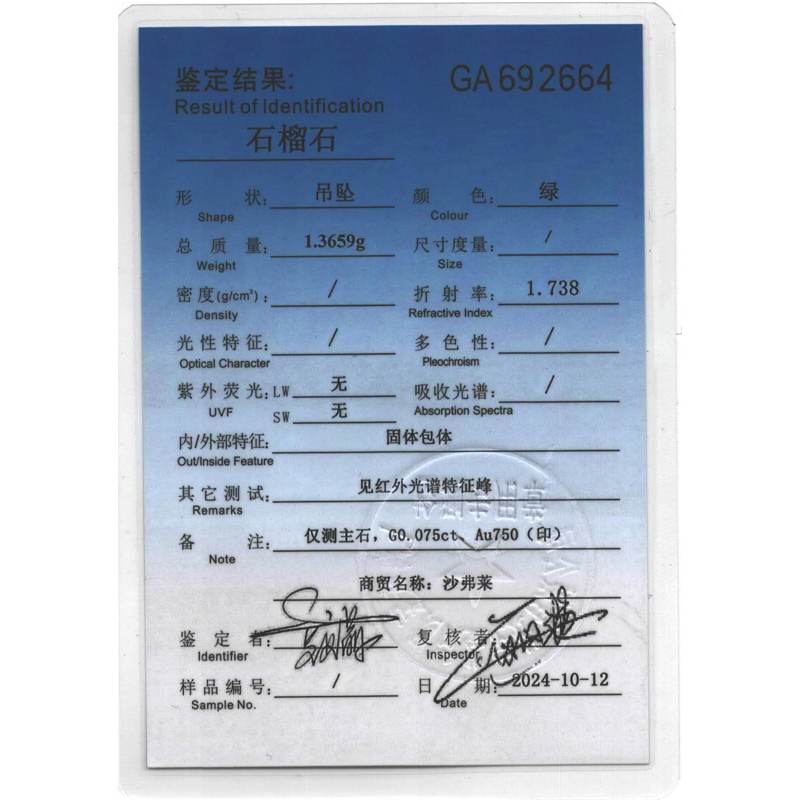 鉴定结果: GA692664
Result of Identification
石榴石
形 状: 吊坠 颜 色: 绿
Shape Colour
总 质 量: 1.3659g 尺寸度量: /
Weight Size
密 度(g/cm³): / 折 射 率: 1.738
Density Refractive Index
光 性 特 征: / 多 色 性: /
Optical Character Pleochroism
紫 外 荧 光: LW 无 吸收光谱: /
UVF SW 无 Absorption Spectra
内/外部特征: 固体包体
Out/Inside Feature
其 它 测 试: 见红外光谱特征峰
Remarks
备 注: 仅测主石, G0.075ct、Au750 (印)
Note
商贸名称: 沙弗莱
鉴 定 者: 复 核 者:
Identifier Inspector
样 品 编 号: / 日 期: 2024-10-12
Sample No. Date